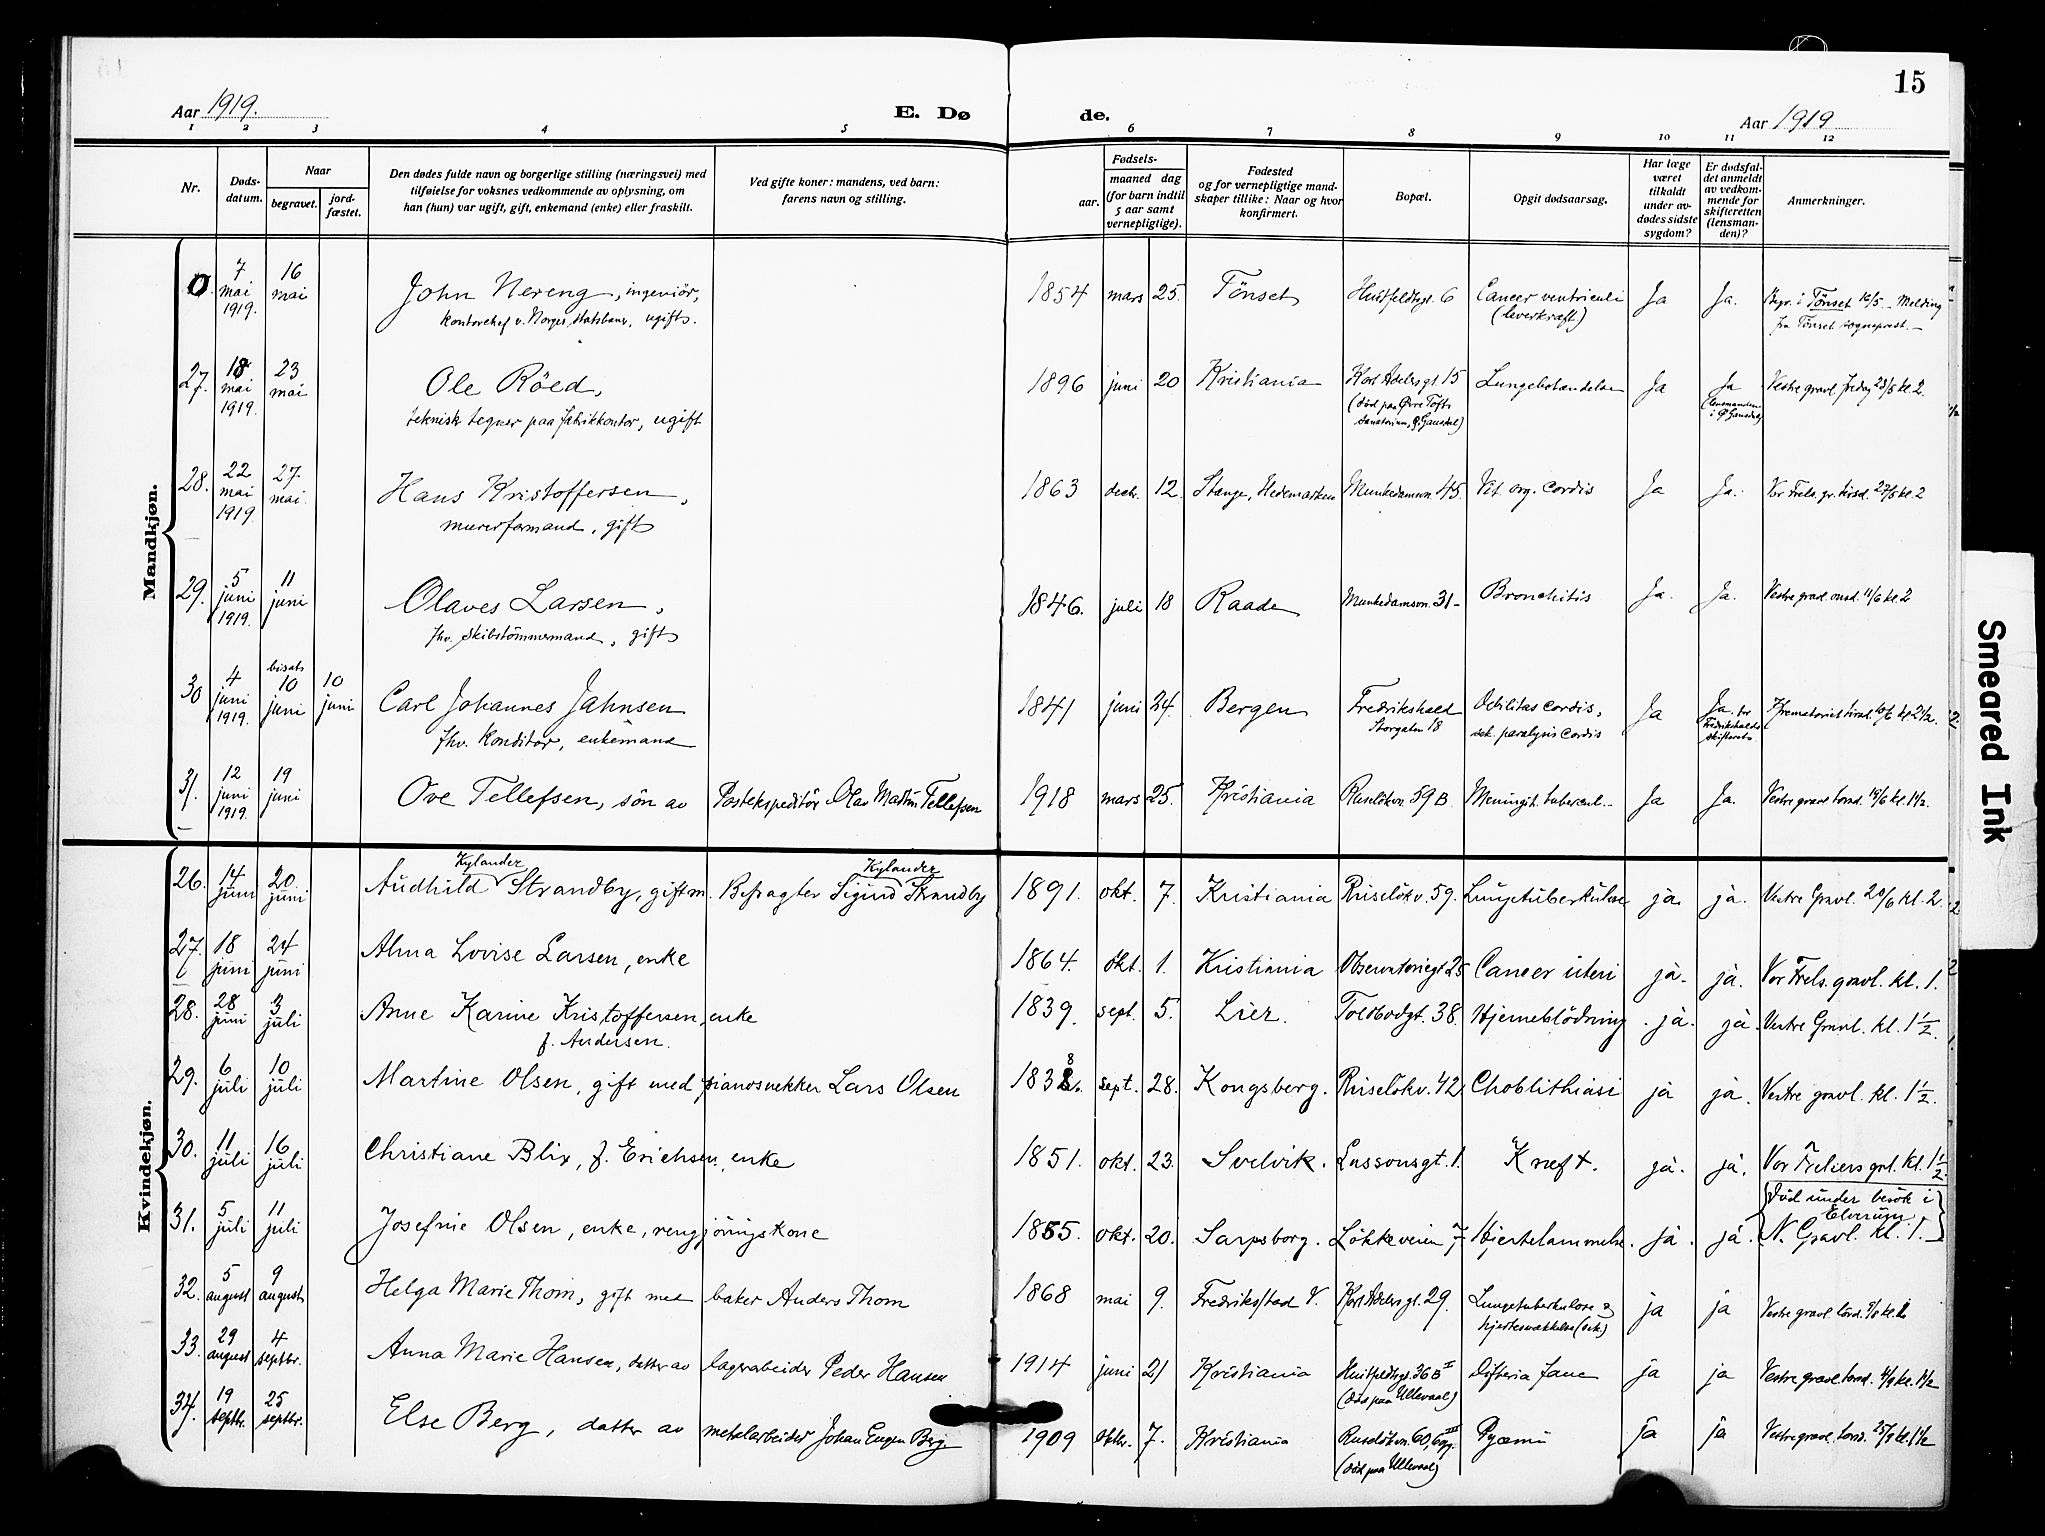 15
Aar 1919.
E. Dø
de.
Aar 1919
1 2 3 4 5 6 7 8 9 10 11 12
Nr.
Døds-
datum.
Naar
begravet.
jord-
fæstet.
Den dødes fulde navn og borgerlige stilling (næringsvei) med
tilføielse for voksnes vedkommende av oplysning, om
han (hun) var ugift, gift, enkemand (enke) eller fraskilt.
Ved gifte koner: mandens, ved barn:
farens navn og stilling.
Fødsels-
aar.
maaned dag
(for barn indtil
5 aar samt
vernepligtige).
Fødested
og for vernepligtige mand-
skaper tillike: Naar og hvor
konfirmert.
Bopæl.
Opgit dødsaarsag.
Har læge
været
tilkaldt
under av-
dødes sidste
sygdom?
Er dødsfal-
det anmeldt
av vedkom-
mende for
skifteretten
(lensman-
den)?
Anmerkninger.
Mandkjøn.
0. 7 mai 1919. 16 mai John Nereng, ingeniør, 1854 mars 25. Tönset Huitfeldtsgt. 6 Cancer ventriculi Ja Ja. Begr. i Tönset 16/5 - Melding
kontorchef v. Norges statsban., ugift. (leverkræft) fra Tönset sogneprest. -
27. 18 mai 1919. 23 mai Ole Röed, 1896 juni 20 Kristiania Karl Adelersgt. 15 Lungebetændelse Ja Ja Vestre gravl. fredag 23/5 kl. 2.
teknisk tegner paa fabrikkontor, ugift (död paa Øvre Tofte (lensmanden
sanatorium, Ø. Gausdal) i Ø Gausdal)
28. 22 mai 1919. 27. mai. Hans Kristoffersen, 1863 decb. 12. Stange, Hedemarken Munkedamsvn. 45. Vit. org. cordis Ja Ja. Vor Frels. gr. tirsd. 27/5 kl. 2
murerformand, gift
29. 5 juni 1919. 11 juni Olaves Larsen, 1846. juli 18 Raade Munkedamsvn. 31- Bronchitis Ja. Ja. Vestre gravl. onsd. 11/6 kl. 2
fhv. skibstömmermand, gift
30 4 juni 1919. bisat 10 juni 10 juni Carl Johannes Jahnsen 1841 juni 24. Bergen Fredrikshald Debilitas cordis, Ja Ja. for Krematoriet tirsd. 10/6 kl. 2 1/2.
fhv. konditor, enkemand Storgaten 18 sek. paralysis cordis Fredrikshalds
skifteret
31. 12 juni 1919. 19 juni Ove Tellefsen, sön av Postekspeditör Olav Martin Tellefsen 1918 mars 25. Kristiania Ruselökvn. 59 B. Meningit. tubercul.- Ja Ja. Vestre gravl. torsd. 19/6 kl. 1 1/2.
Kvindekjøn.
Kylander Kylander
26. 14 juni 20. juni Audhild Strandby, gift m. Befragter Sigurd Strandby 1891. okt. 7. Kristiania Ruselökv. 59. Lungetuberkulose ja. ja. Vestre Gravl. 20/6 kl. 2.
27. 18 juni 24 juni Alma Lovise Larsen, enke 1864. okt. 1. Kristiania Observatoriegt 25 Cancer uteri ja. ja. Vor Frels. gravl. kl. 1.
28. 28 juni 3 juli Anne Karine Kristoffersen, enke 1839. sept. 5. Lier. Toldbodgt. 38. Hjerneblödning. ja. ja Vestre Gravl. kl. 1 1/2.
f. Andersen.
29. 6 juli 10 juli Martine Olsen, gift med pianosnekker Lars Olsen 1838. sept. 28. Kongsberg. Ruselökv. 42. Choblithiasi ja ja. Vestre gravl. kl. 1 1/2.
30. 11 juli 16 juli Christiane Blix, f. Erichsen, enke 1851. okt. 23. Svelvik. Lassonsgt. 1. Kræft. ja. ja. Vor Frelsers grl. kl. 1 1/2.
Död under besök i
Elverum.
31. 5 juli 11 juli Josefine Olsen, enke, rengjöringskone 1855. okt. 20. Sarpsborg. Lökkeveien 7 Hjertelammelse. ja. ja. N. Gravl. kl. 1.
32. 5 august 9 august Helga Marie Thom, gift med baker Anders Thom 1868 mai 9. Fredrikstad V. Karl Adelersgt. 29. Lungetuberkulose & ja ja Vestre gravl. lörd. 9/8 kl. 1
hjertesvækkelse (sek)
33. 29 august 4 septbr. Anna Marie Hansen, datter av lagerarbeider Peder Hansen 1914 juni 21 Kristiania Huitfeldtsgt. 36 B II Difteria fauc ja ja Vestre gravl. torsd. 4/9 kl. 1 1/2
(död paa Ullevaal)
34. 19 septbr. 25 septbr. Else Berg, datter av metalarbeider Johan Eugen Berg 1909 oktbr. 7. Kristiania Ruselökvn. 60, Pyæmi ja ja Vestre gravl. torsd. 25/9 kl. 1 1/2
(död paa Ullevaal)
Smeared Ink